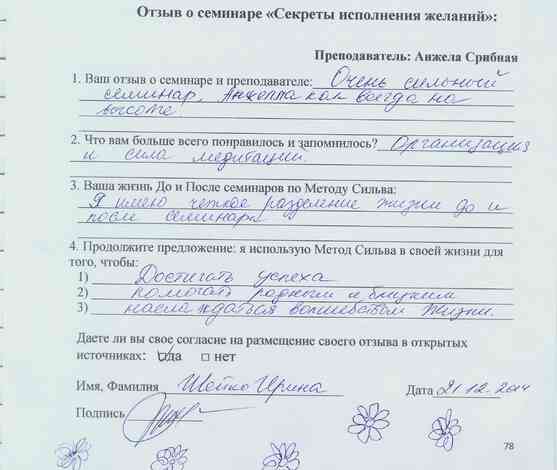 Отзыв о семинаре «Секреты исполнения желаний»:
Преподаватель: Анжела Срибная
1. Ваш отзыв о семинаре и преподавателе: Очень сильный
семинар, Анжелла как всегда на
высоте
2. Что вам больше всего понравилось и запомнилось? Организация
и сила медитации.
3. Ваша жизнь До и После семинаров по Методу Сильва:
Я имею четкое разделение жизни до и
после семинара
4. Продолжите предложение: я использую Метод Сильва в своей жизни для
того, чтобы:
1) Достигать успеха
2) помогать родным и близким
3) наслаждаться волшебством жизни.
Даете ли вы свое согласие на размещение своего отзыва в открытых
источниках: да нет
Имя, Фамилия Шейко Ирина Дата 21 12. 2014
Подпись
78